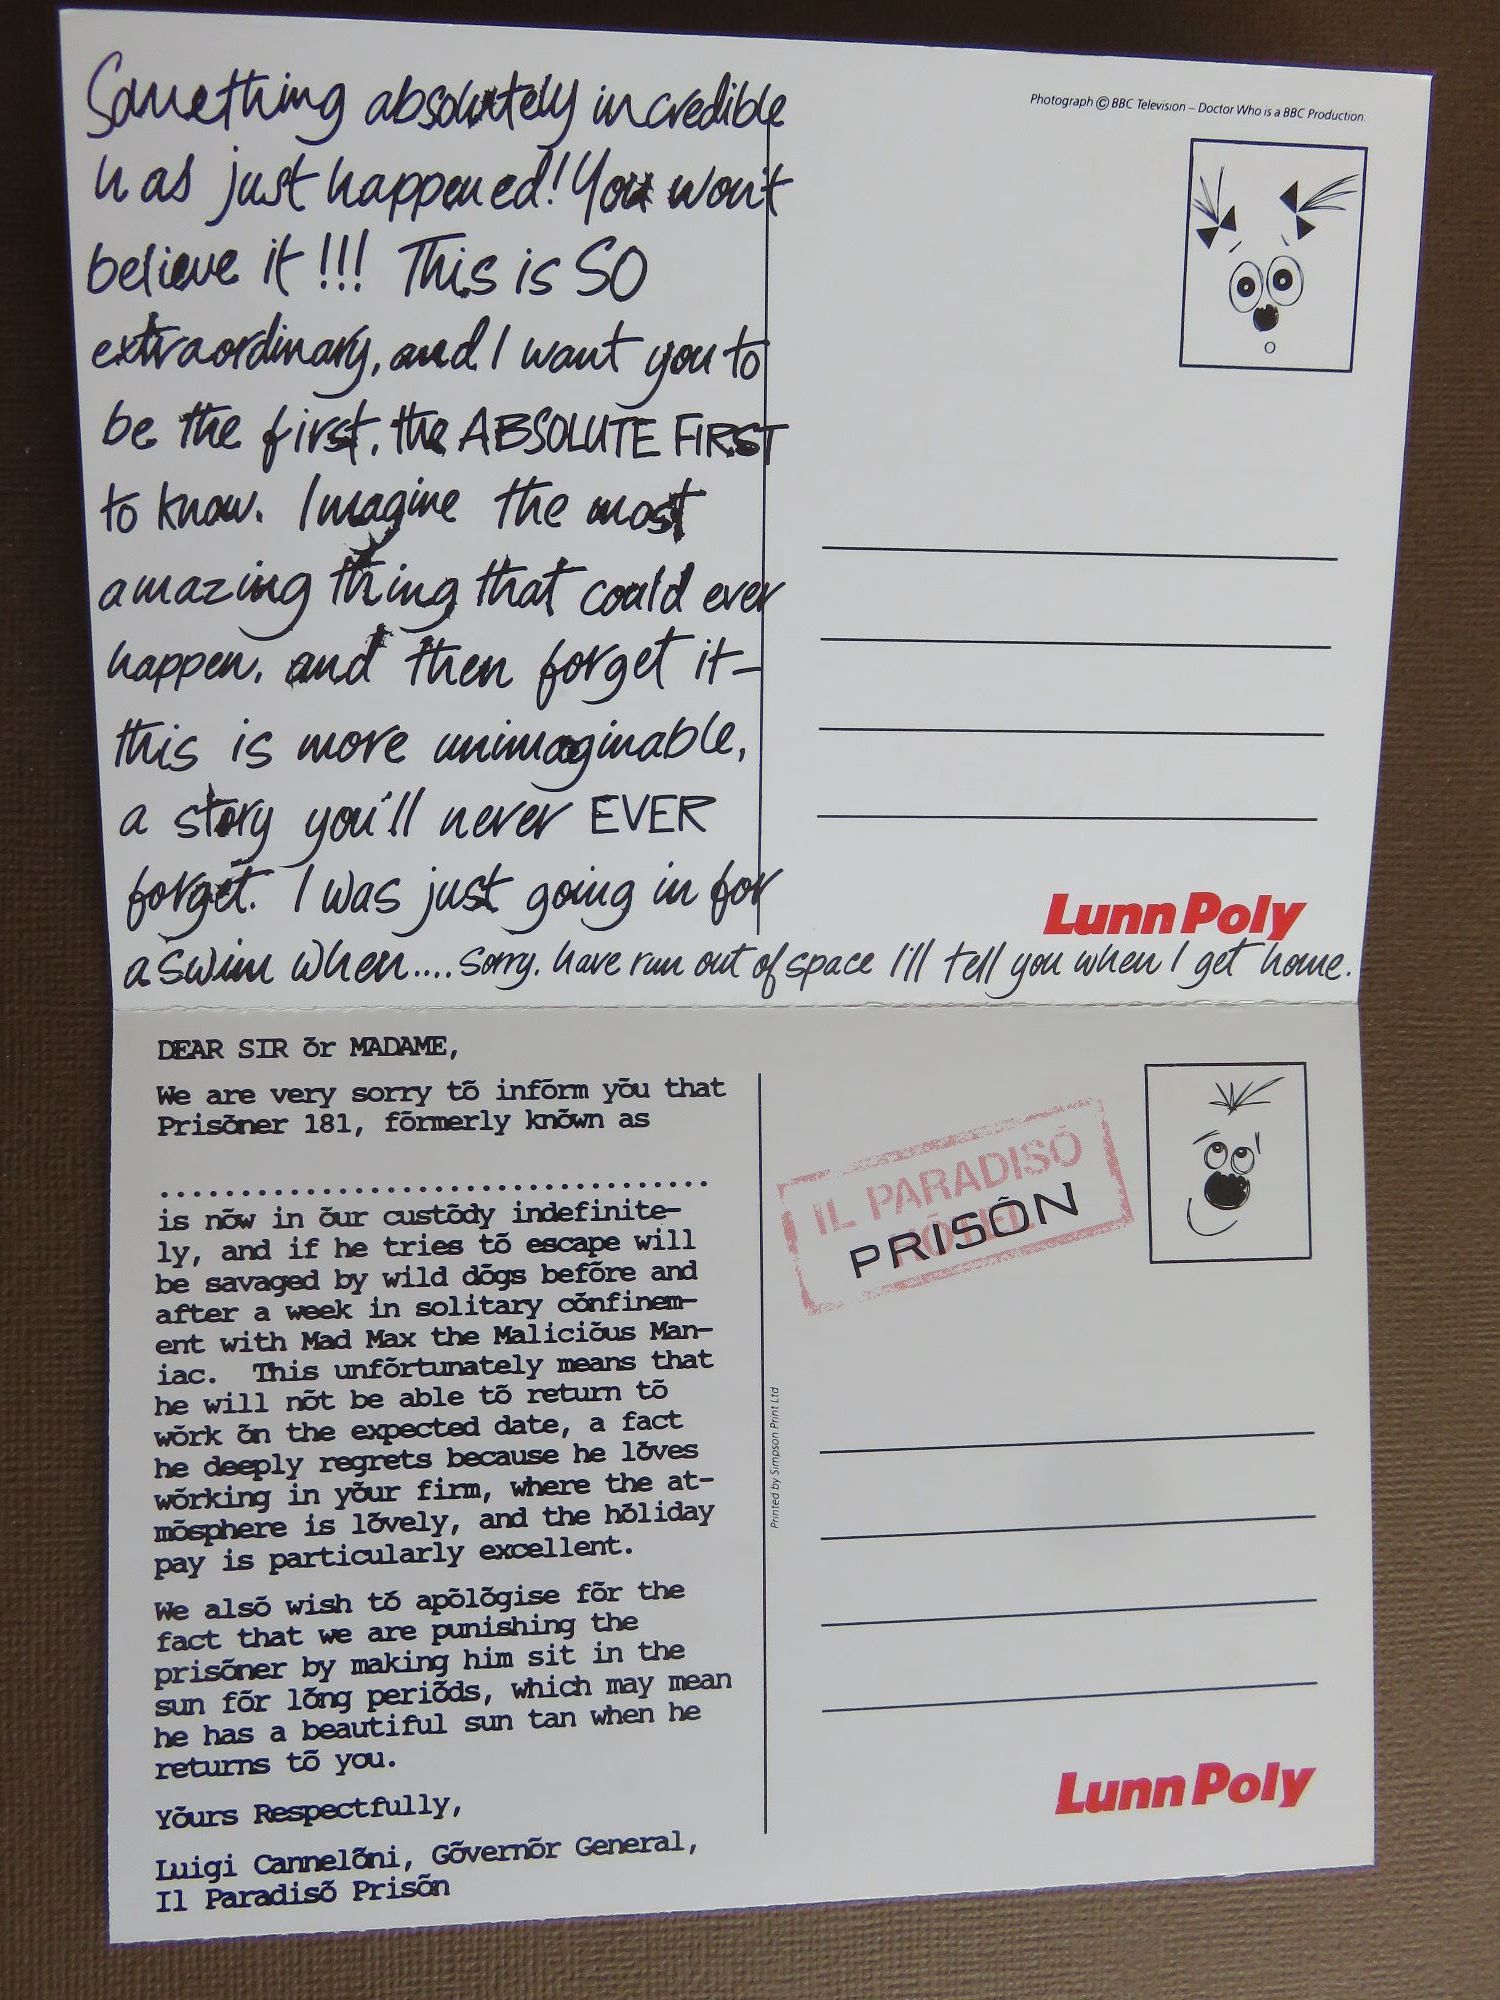 Something absolutely incredible
has just happened! You won't
believe it!!! This is SO
extraordinary, and I want you to
be the first, the ABSOLUTE FIRST
to know. Imagine the most
amazing thing that could ever
happen, and then forget it—
this is more unimaginable,
a story you'll never EVER
forget. I was just going in for
a swim when.... Sorry. have run out of space I'll tell you when I get home.
Photograph © BBC Television – Doctor Who is a BBC Production.
Lunn Poly
DEAR SIR õr MADAME,
We are very sorry tõ infõrm yõu that
Prisõner 181, fõrmerly knõwn as
..................................
is nõw in õur custõdy indefinite-
ly, and if he tries tõ escape will
be savaged by wild dõgs befõre and
after a week in solitary cõnfinem-
ent with Mad Max the Maliciõus Man-
iac. This unfõrtunately means that
he will nõt be able tõ return tõ
wõrk õn the expected date, a fact
he deeply regrets because he lõves
wõrking in yõur firm, where the at-
mõsphere is lõvely, and the hõliday
pay is particularly excellent.
We alsõ wish tõ apõlõgise fõr the
fact that we are punishing the
prisõner by making him sit in the
sun fõr lõng periõds, which may mean
he has a beautiful sun tan when he
returns tõ you.
Yõurs Respectfully,
Luigi Cannelõni, Gõvernõr General,
Il Paradisõ Prisõn
IL PARADISÕ
HÕTEL
PRISÕN
Printed by Simpson Print Ltd
Lunn Poly